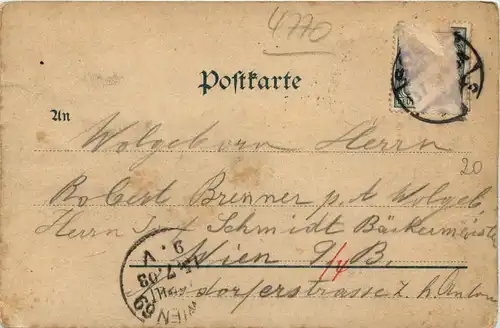 4770
Postkarte
An
Wolgeborn Herrn
20
Robert Brenner p. A. Wolgeb.
Herrn Schmidt Bäckermeister
Wien 9/4 B.
dorferstrasse z. h. Anton
9. V
7.03
WIEN
69